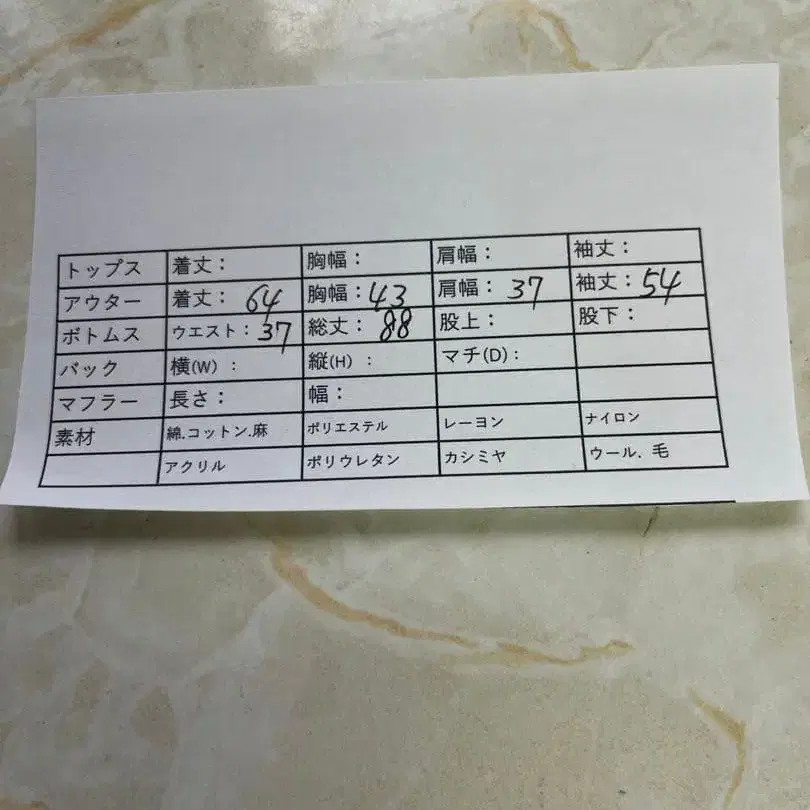 トップス 着丈： 胸幅： 肩幅： 袖丈：
アウター 着丈： 64 胸幅：43 肩幅： 37 袖丈：54
ボトムス ウエスト：37 総丈：88 股上： 股下：
バック 横(W)： 縦(H)： マチ(D)：
マフラー 長さ： 幅：
素材 綿.コットン.麻 ポリエステル レーヨン ナイロン
アクリル ポリウレタン カシミヤ ウール. 毛